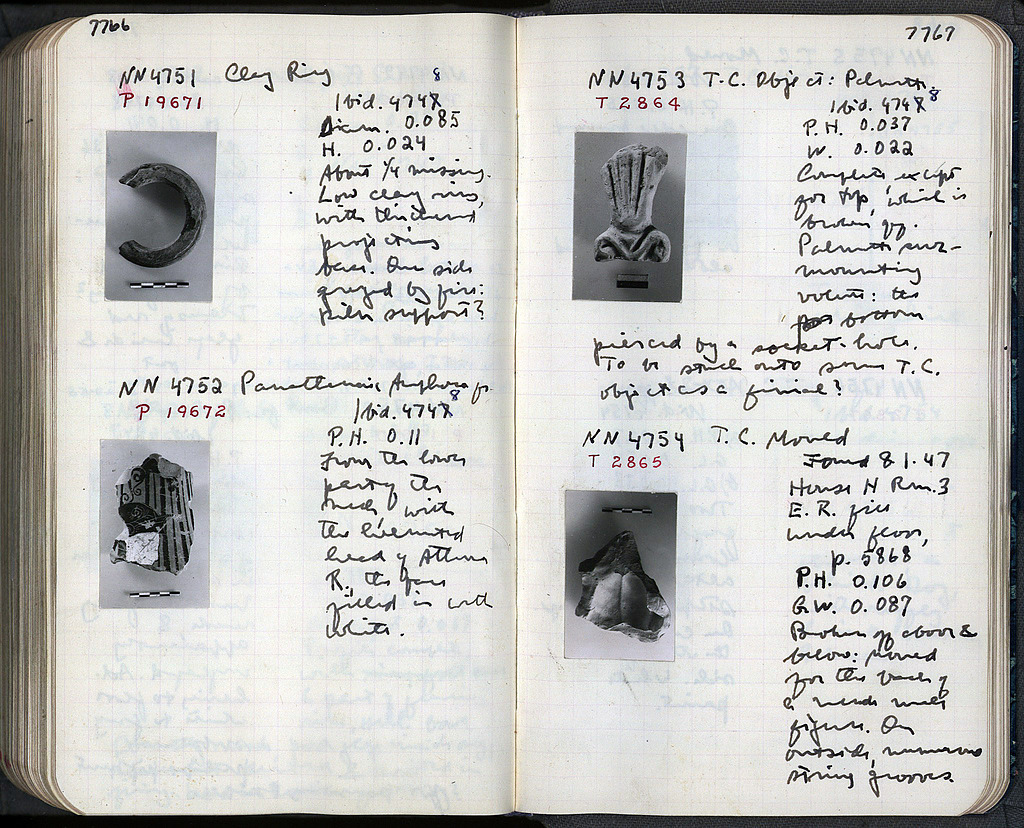 7766
NN4751 Clay Ring
P 19671
Ibid. 4748
Diam. 0.085
H. 0.024
About 1/4 missing.
Low clay ring,
with thickened
projecting
base. One side
grayed by fire:
kiln support?
NN 4752 Panathenaic Amphora fr.
P 19672
Ibid. 4748
P.H. 0.11
From the lower
part of the
neck with
the
head of Athena
R., the face
filled in with
white.
7767
NN4753 T.C. Object: Palmette
T 2864
Ibid. 4748
P.H. 0.037
W. 0.022
Complete except
for top, which is
broken off.
Palmette sur-
mounting
volute: the
bottom
pierced by a socket-hole.
To be stuck onto some T.C.
object as a finial?
NN4754 T.C. Mould
T 2865
Found 8 1.47
House H Rm.3
E.R. fill
under floor,
p. 5868
P.H. 0.106
G.W. 0.087
Broken off above &
below: mould
for the back of
a nude male
figure. On
outside, numerous
string grooves.